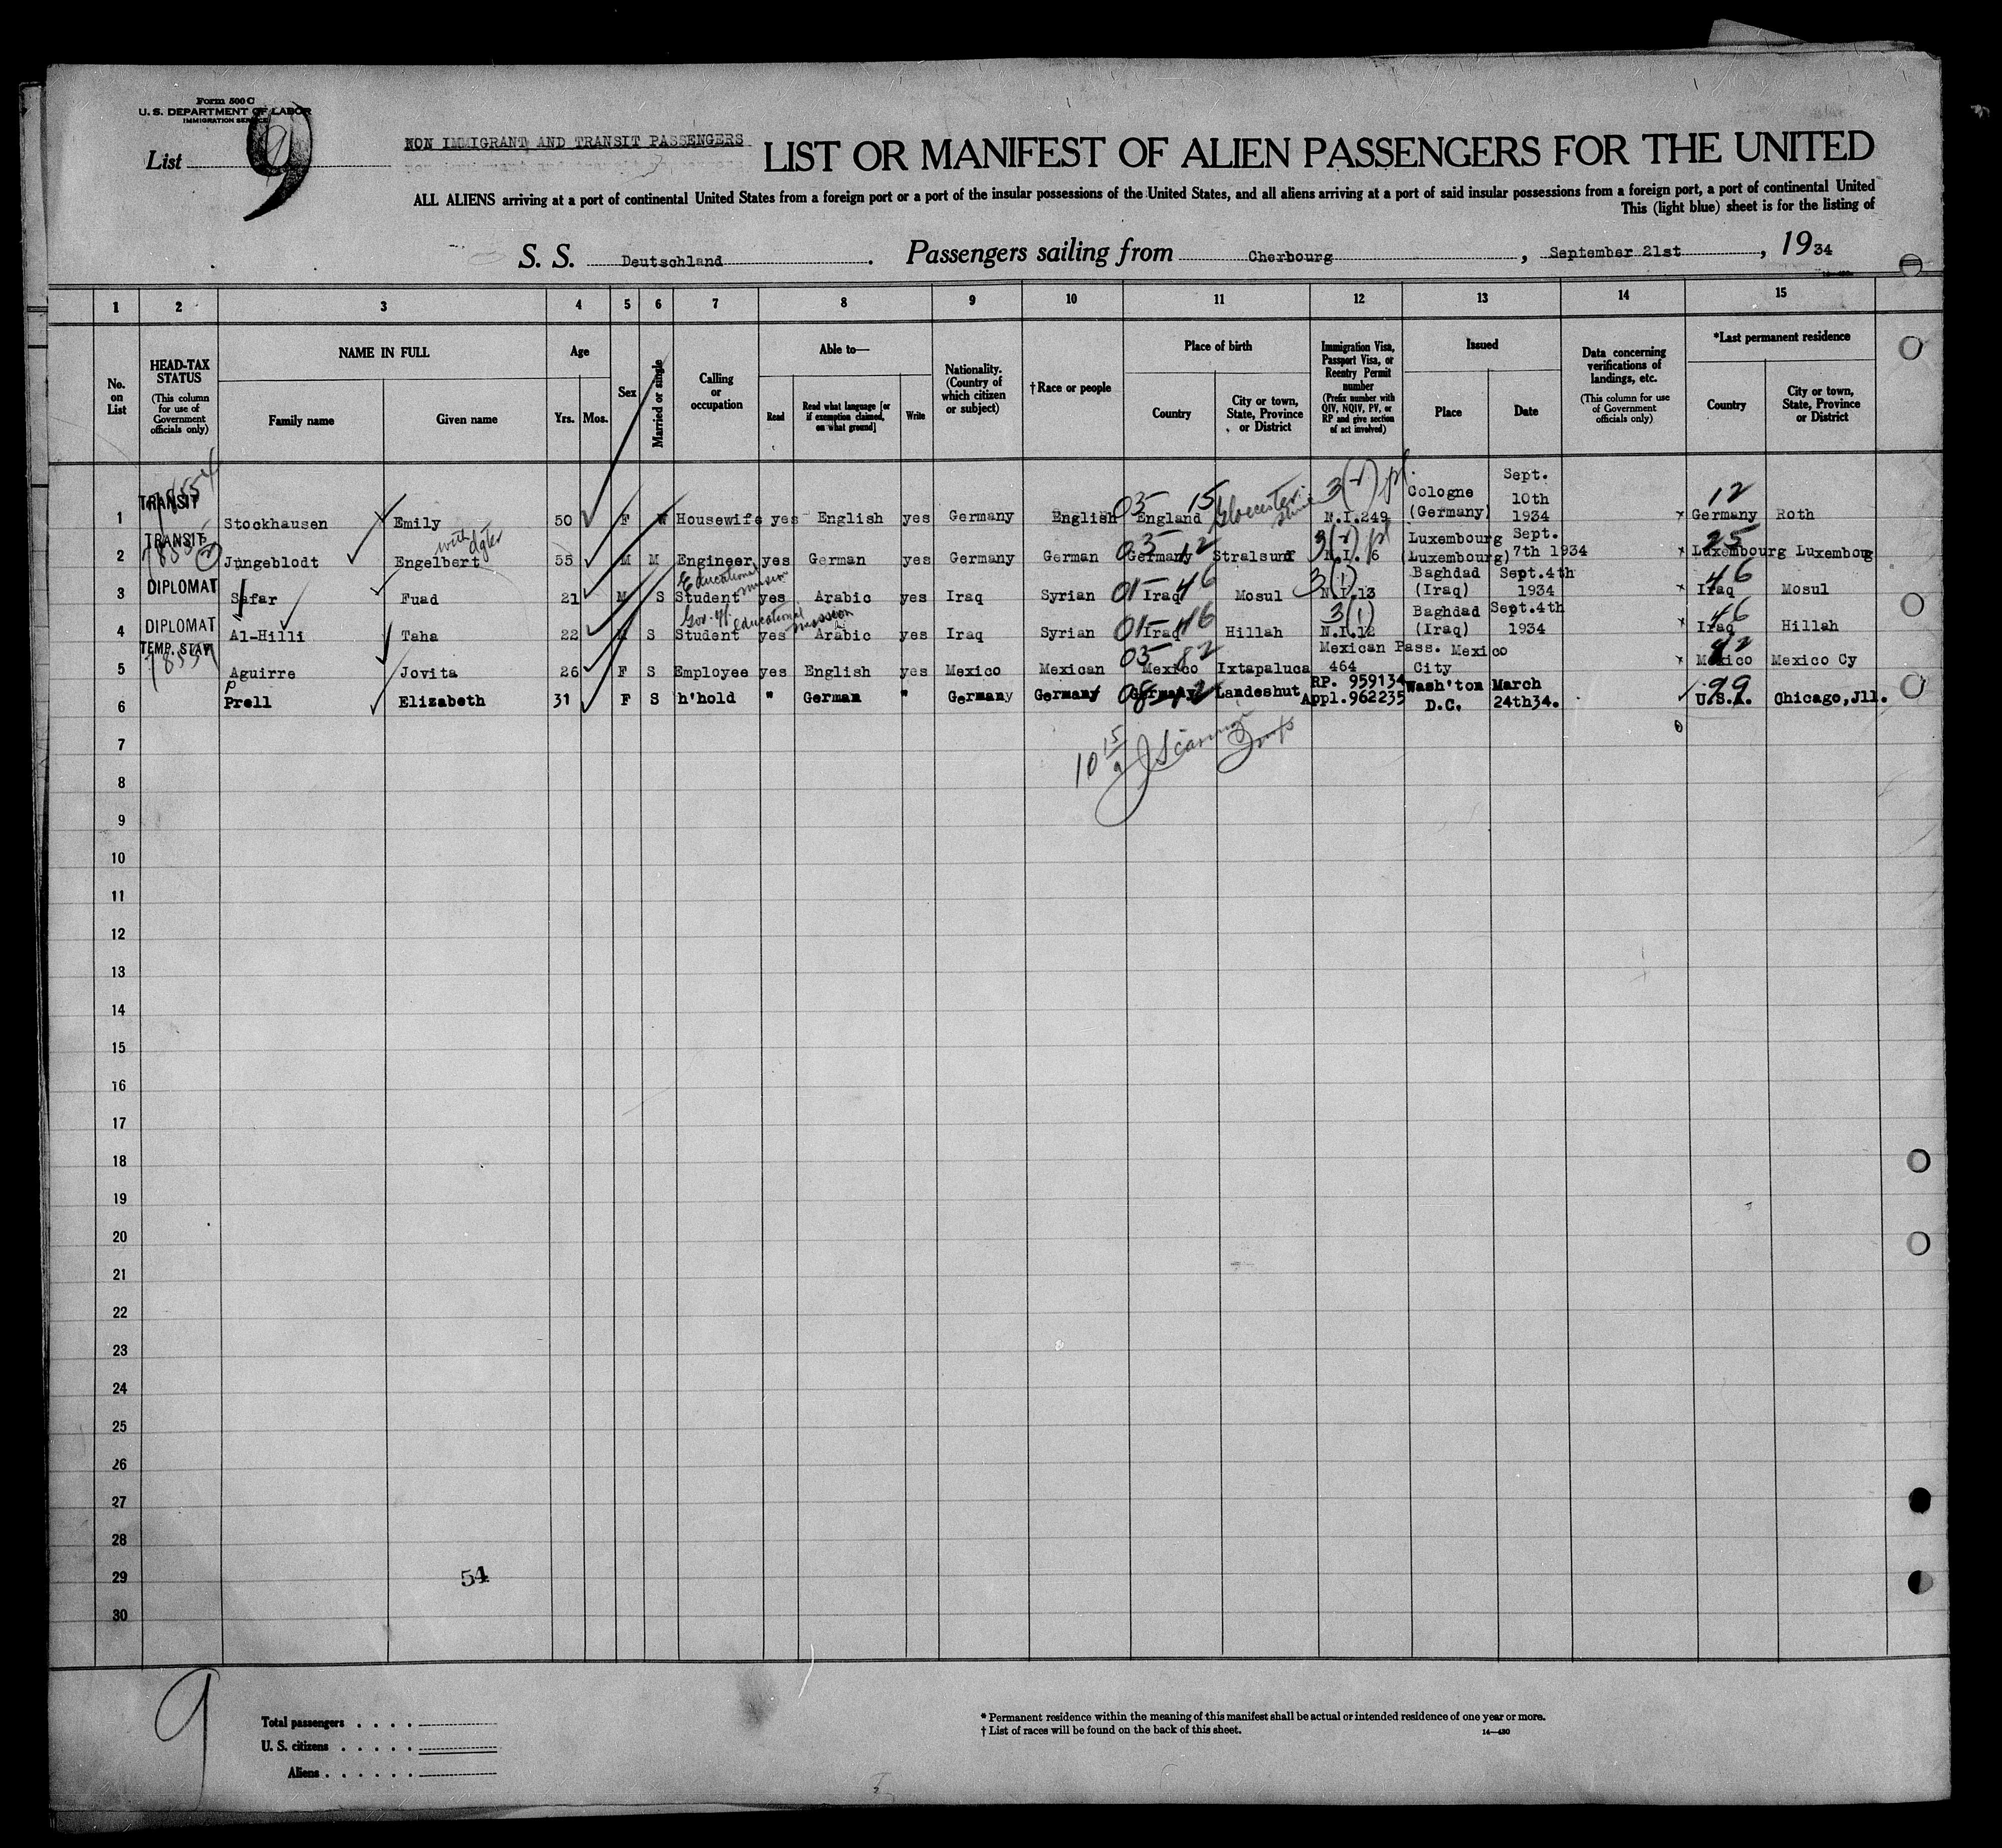 Form 500 C
U. S. DEPARTMENT OF LABOR
IMMIGRATION SERVICE
List 9
NON IMMIGRANT AND TRANSIT PASSENGERS
LIST OR MANIFEST OF ALIEN PASSENGERS FOR THE UNITED
ALL ALIENS arriving at a port of continental United States from a foreign port or a port of the insular possessions of the United States, and all aliens arriving at a port of said insular possessions from a foreign port, a port of continental United
This (light blue) sheet is for the listing of
S. S. Deutschland. Passengers sailing from Cherbourg, September 21st, 1934
1 2 3 4 5 6 7 8 9 10 11 12 13 14 15
No. on List
HEAD-TAX STATUS
(This column for use of Government officials only)
NAME IN FULL
Family name Given name
Age
Yrs. Mos.
Sex
Married or single
Calling or occupation
Able to—
Read
Read what language [or if exemption claimed, on what ground]
Write
Nationality. (Country of which citizen or subject)
†Race or people
Place of birth
Country
City or town, State, Province or District
Immigration Visa, Passport Visa, or Reentry Permit number
(Prefix number with QIV, NQIV, PV, or RP and give section of act involved)
Issued
Place Date
Data concerning verifications of landings, etc.
(This column for use of Government officials only)
*Last permanent residence
Country
City or town, State, Province or District
1 TRANSIT Stockhausen Emily 50 F W Housewife yes English yes Germany English 03 15 England Gloucester shire 3(2) pl. N.I.249 Cologne (Germany) Sept. 10th 1934 12 Germany Roth
2 TRANSIT Jungeblodt Engelbert with dgtr 55 M M Engineer yes German yes Germany German 03 12 Germany Stralsund 3(2) pl N.I. 6 Luxembourg (Luxembourg) Sept. 7th 1934 25 Luxembourg Luxembourg
3 DIPLOMAT Safar Fuad 21 M S Educational mission Student yes Arabic yes Iraq Syrian 01 46 Iraq Mosul 3(1) N.I.13 Baghdad (Iraq) Sept.4th 1934 46 Iraq Mosul
4 DIPLOMAT Al-Hilli Taha 22 M S Gov. off. educational mission Student yes Arabic yes Iraq Syrian 01 46 Iraq Hillah 3(1) N.I.12 Baghdad (Iraq) Sept.4th 1934 46 Iraq Hillah
5 TEMP. STAY Aguirre Jovita 26 F S Employee yes English yes Mexico Mexican 03 82 Mexico Ixtapaluca Mexican Pass. 464 Mexico City 82 Mexico Mexico Cy
6 p Prell Elizabeth 31 F S h'hold " German " Germany Germany 08 12 Germany Landeshut RP. 959134 Appl.962235 Wash'ton D.C. March 24th34. 99 U.S.A. Chicago,Jll.
7
8
9
10
11
12
13
14
15
16
17
18
19
20
21
22
23
24
25
26
27
28
29
30
54
9
Total passengers
U. S. citizens
Aliens
* Permanent residence within the meaning of this manifest shall be actual or intended residence of one year or more.
† List of races will be found on the back of this sheet.
14—430